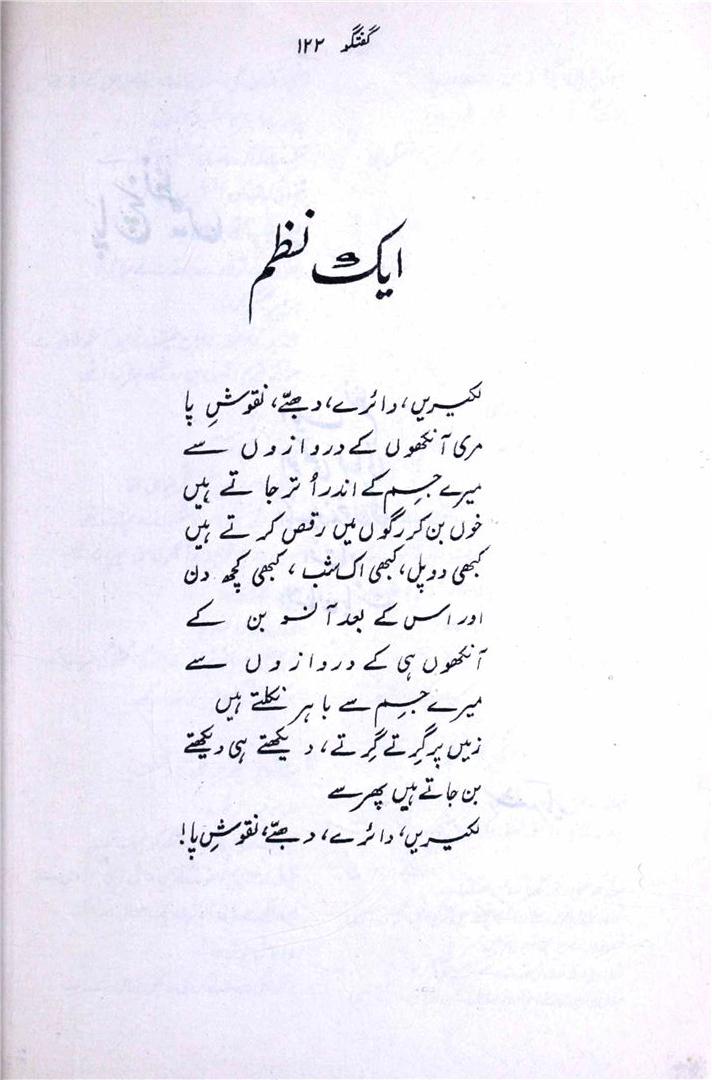 گفتگو ۱۲۲
ایک نظم
لکیریں، دائرے، دھبّے، نقوشِ پا
مری آنکھوں کے دروازوں سے
میرے جسم کے اندر اُتر جاتے ہیں
خوں بن کر رگوں میں رقص کرتے ہیں
کبھی دو پل، کبھی اک شب، کبھی کچھ دن
اور اس کے بعد آنسو بن کے
آنکھوں ہی کے دروازوں سے
میرے جسم سے باہر نکلتے ہیں
زمیں پر گرتے گرتے، دیکھتے ہی دیکھتے
بن جاتے ہیں پھر سے
لکیریں، دائرے، دھبّے، نقوشِ پا!